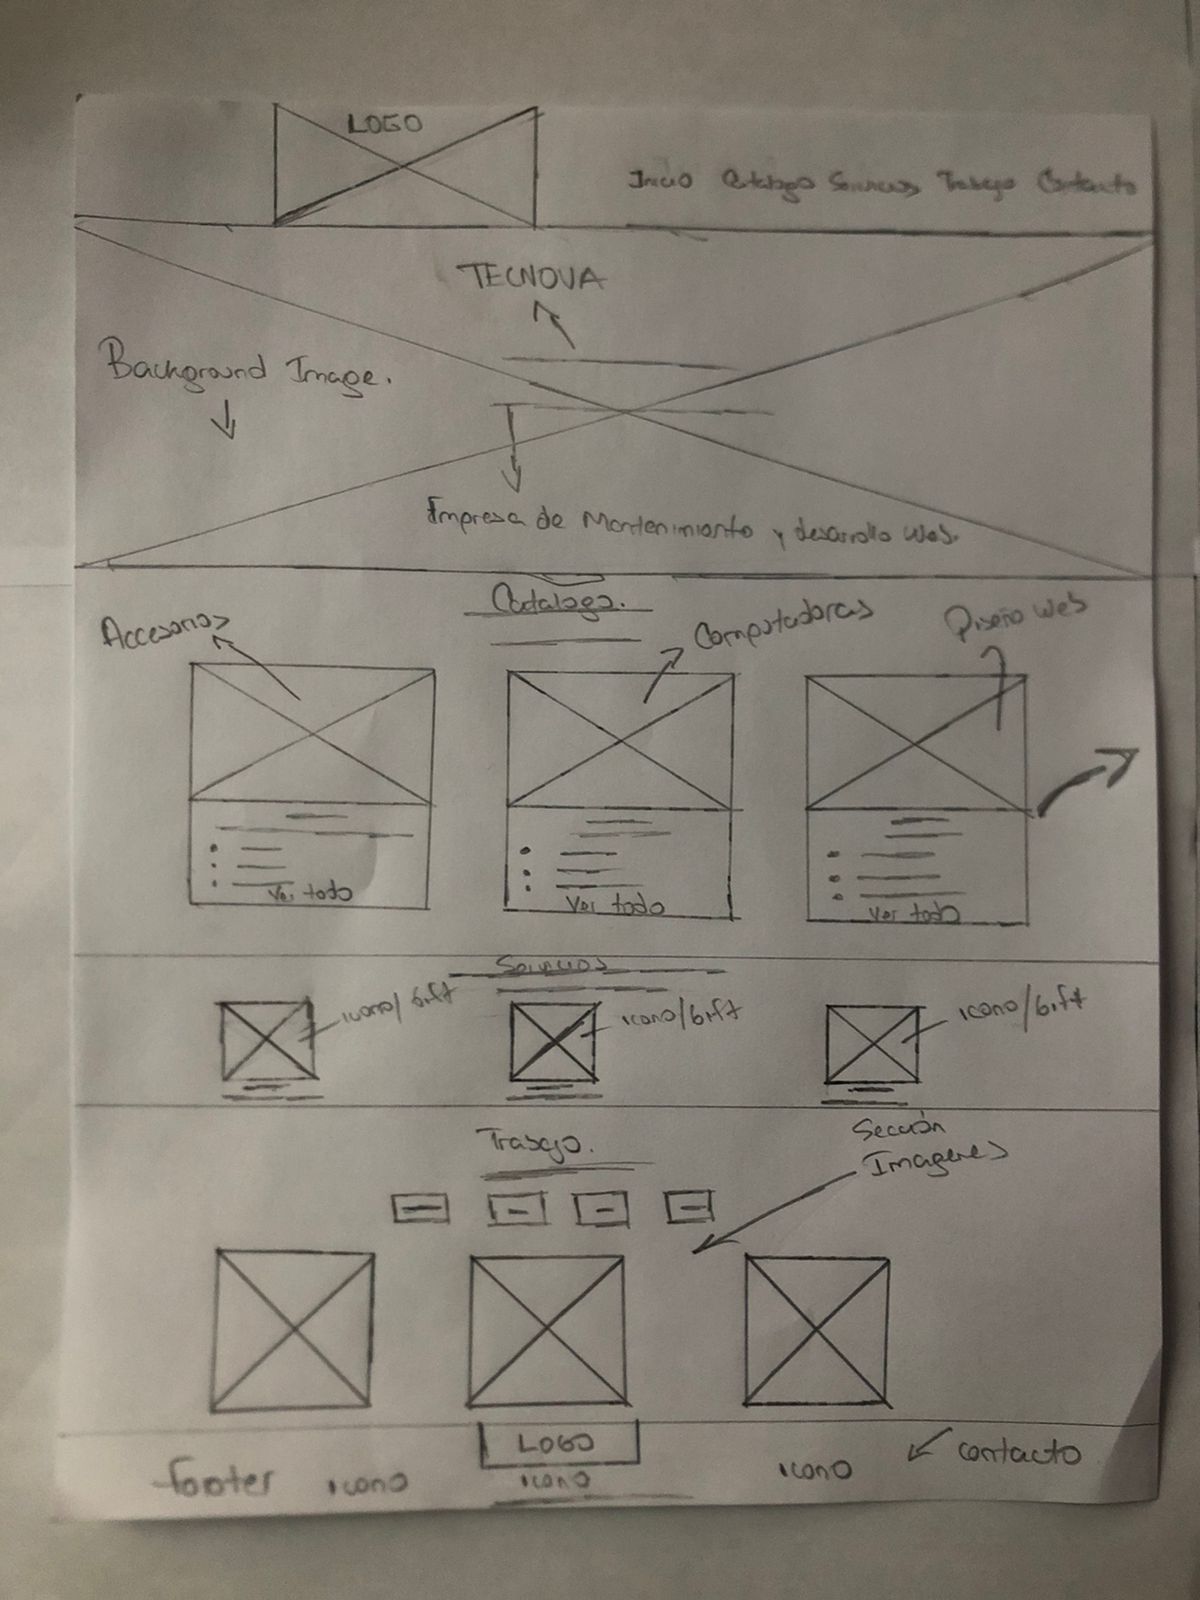 LOGO
Inicio Catalogo Servicios Trabajo Contacto
TECNOVA
Background Image.
Empresa de Mantenimiento y desarrollo Web.
Catalogo.
Accesorios
Computadoras
Diseño Web
Ver todo
Ver todo
Ver todo
Servicios
icono/
icono/
icono/
Trabajo.
Sección
Imagenes
LOGO
footer icono icono icono contacto